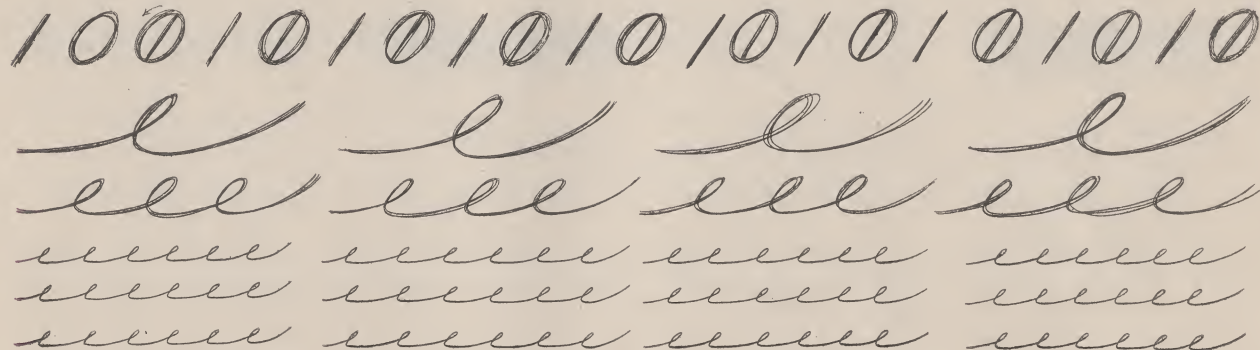 / O Ø / Ø / Ø / Ø / Ø / Ø / Ø / Ø / Ø / Ø
e e e e
eee eee eee eee
eeeeee eeeeee eeeeee eeeeee
eeeeee eeeeee eeeeee eeeeee
eeeeee eeeeee eeeeee eeeeee